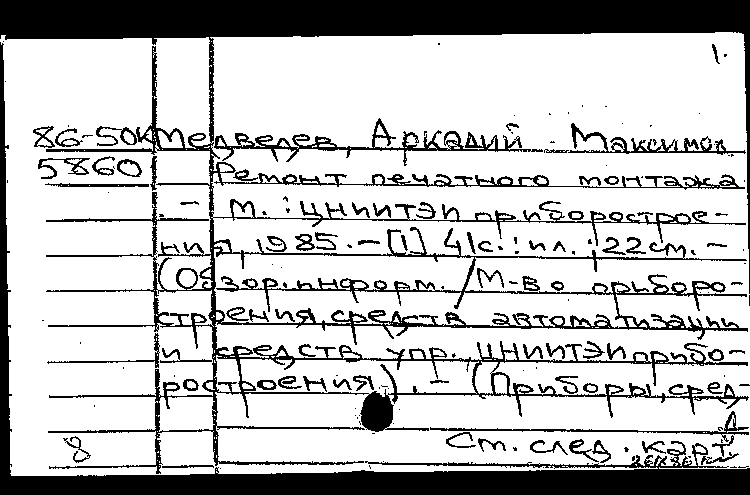 1.
86-50К Медведев, Аркадий Максимов
5860 Ремонт печатного монтажа
. – М. : ЦНИИТЭИ приборострое-
ния, 1985. – [1], 41с. : ил. ; 22 см. –
(Обзор. информ. / М-во приборо-
строения, средств автоматизации
и средств упр., ЦНИИТЭИ прибо-
ростроения). – (Приборы, сред-
8 См. след. карт